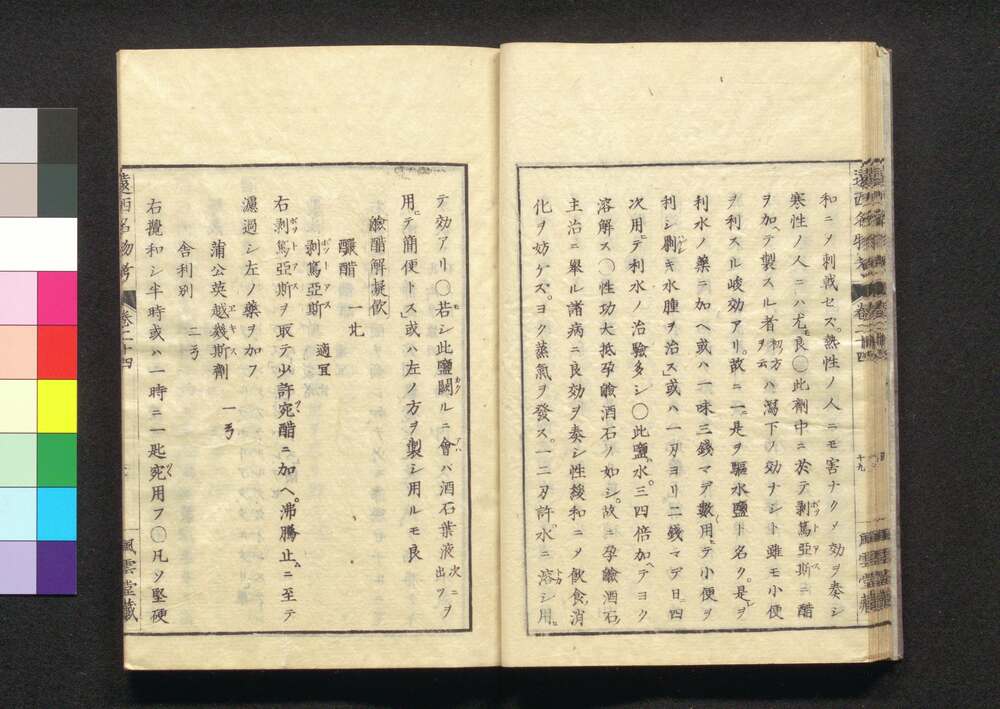 和ニメ刺戟セズ。熱性ノ人ニモ害ナクメ効ヲ奏シ
寒性ノ人ニハ尤モ良○此劑中ニ於テ剥篤亞斯ニ醋
ボットアス
ヲ加ヘテ製スル者初方ヲ云ハ瀉下ノ効ナシト雖モ小便
ヲ利スル峻効アリ。故ニ一ニ是ヲ驅水鹽ト名ク。是ヲ
利水ノ藥ニ加ヘ或ハ一味三錢マデ數用メテ小便ヲ
利シ劇キ水腫ヲ治ス或ハ一刃ヨリ二錢マデ日ニ四
次用テ利水ノ治驗多シ○此鹽水。三四倍加ヘテヨク
溶解ス○性功大抵孕鹼酒石ノ如シ。故ニ孕鹼酒石
主治ニ擧ル諸病ニ良効ヲ奏シ性緩和ニメ飲食消
化ヲ妨ゲズ。ヨク蒸氣ヲ發ス。一二刃許水ニ溶シ用
遠西名物考 卷二十四
十九
風雲堂藏
テ効アリ○若シ此鹽闕ルニ會ハ酒石葉液次ニ出ツヲ
用テ簡便トス或ハ左ノ方ヲ製シ用ルモ良
鹼醋解凝飲
釀醋 一
剥篤亞斯 適宜
ボットアース
右剥篤亞斯ヲ取テ少許宛醋ニ加ヘ。沸騰止ニ至テ
ボットアス
濾過シ左ノ藥ヲ加フ
蒲公英越幾斯劑 一
エキス
舎利別 二
右攪和シ半時或ハ一時ニ一匙宛用フ○凡ソ堅硬
遠西名物考 卷二十四
風雲堂藏